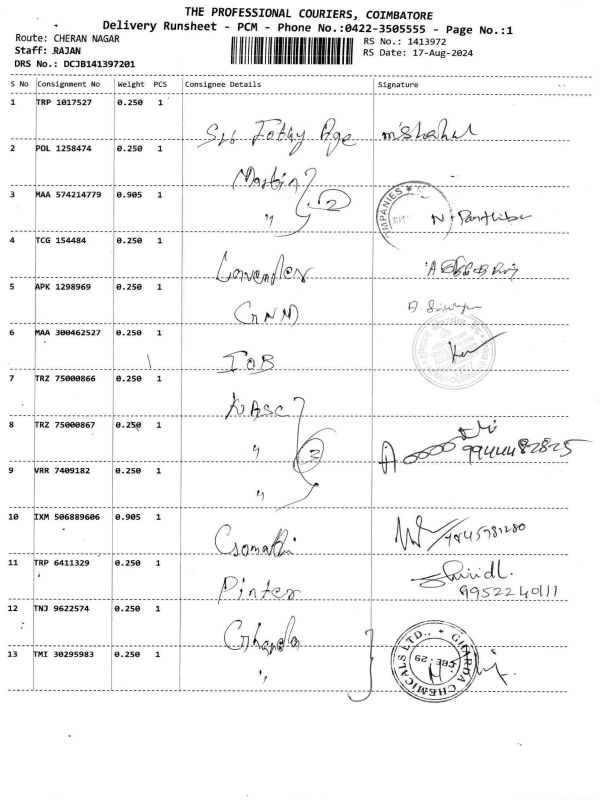 THE PROFESSIONAL COURIERS, COIMBATORE
Delivery Runsheet - PCM - Phone No.:0422-3505555 - Page No.:1
Route: CHERAN NAGAR
RS No.: 1413972
Staff: RAJAN
RS Date: 17-Aug-2024
DRS No.: DCJB141397201
S No Consignment No Weight PCS Consignee Details Signature
1 TRP 1017527 0.250 1
2 POL 1258474 0.250 1
3 MAA 574214779 0.905 1 "
4 TCG 154484 0.250 1 Lavender
5 APK 1298969 0.250 1 GNM
6 MAA 300462527 0.250 1 IOB
7 TRZ 75000866 0.250 1 KASC
8 TRZ 75000867 0.250 1 " 9944482825
9 VRR 7409182 0.250 1 "
10 IXM 506889606 0.905 1 Gomathi
11 TRP 6411329 0.250 1 Pinter
9952240111
12 TNJ 9622574 0.250 1
13 TMI 30295983 0.250 1 "
CHEMICALS LTD., * CBE-29